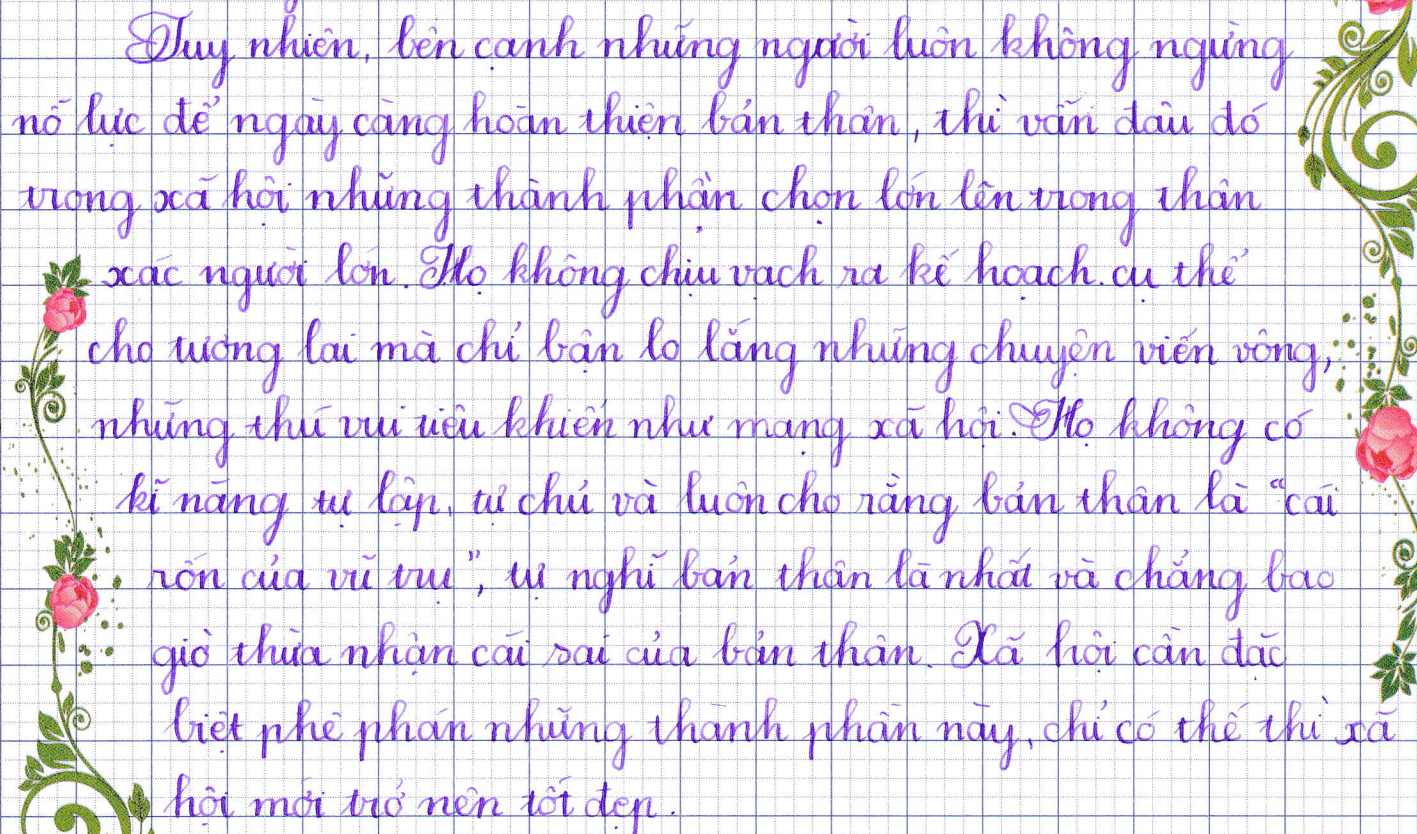 Tuy nhiên, bên cạnh những người luôn không ngừng
nỗ lực để ngày càng hoàn thiện bản thân, thì vẫn đâu đó
trong xã hội những thành phần chọn lớn lên trong thân
xác người lớn. Họ không chịu vạch ra kế hoạch cụ thể
cho tương lai mà chỉ bận lo lắng những chuyện viển vông,
những thú vui tiêu khiển như mạng xã hội. Họ không có
kĩ năng tự lập, tự chủ và luôn cho rằng bản thân là “cái
rốn của vũ trụ”, tự nghĩ bản thân là nhất và chẳng bao
giờ thừa nhận cái sai của bản thân. Xã hội cần đặc
biệt phê phán những thành phần này, chỉ có thế thì xã
hội mới trở nên tốt đẹp.